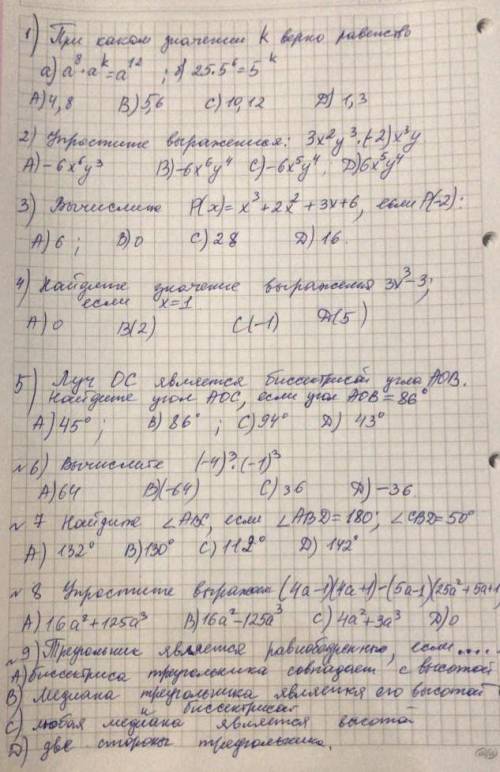 1) При каком значении k верно равенство
а) a⁸·aᵏ=a¹² ; б) 25·5⁶=5ᵏ
А) 4, 8 В) 5,6 С) 10,12 Д) 1,3
2) Упростите выражения: 3x²y³·(-2)x³y
А) -6x⁶y³ В) -6x⁶y⁴ С) -6x⁵y⁴. Д) 6x⁵y⁴
3) Вычислите P(x)= x³+2x²+3x+6, если P(-2):
А) 6; В) 0 С) 28 Д) 16.
4) Найдите значение выражения 3x³-3;
если x=1.
А) 0 В(2) С(-1) Д(5)
5) Луч ОС является биссектрисой угла АОВ.
Найдите угол АОС, если угол АОВ = 86°
А) 45°; В) 86°; С) 94° Д) 43°
№6) Вычислите (-4)³·(-1)³
А) 64 В)(-64) С) 36 Д) -36
№7 Найдите ∠АВС, если ∠ABD=180°; ∠CBD=50°
А) 132° В) 130° С) 112° Д) 142°
№8 Упростите выражен (4a-1)(4a+1)-(5a-1)(25a²+5a+1
А) 16a²+125a³ В) 16a²-125a³ С) 4a²+3a³ Д) 0
№9) Треугольник является равнобедренным, если .....
А) биссектриса треугольника совпадает с высотой
В) Медиана треугольника является его высотой
и биссектрисой
С) любая медиана является высотой
Д) две стороны треугольника.